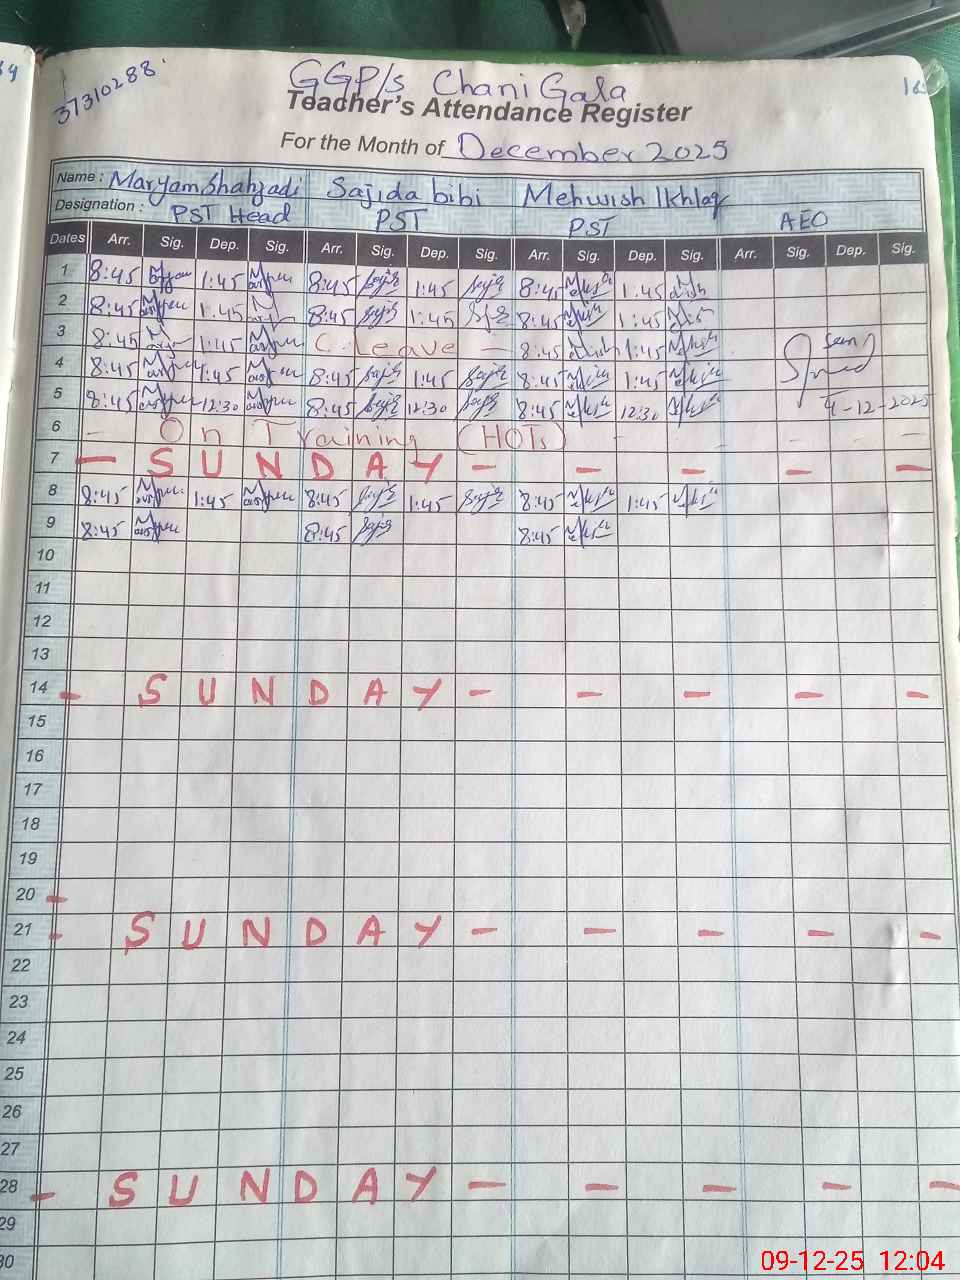 37310288
GGP/s Chani Gala
Teacher's Attendance Register
For the Month of December 2025
Name : Maryam Shahzadi Sajida bibi Mehwish Ikhlaq
Designation : PST Head PST PST AEO
Dates Arr. Sig. Dep. Sig. Arr. Sig. Dep. Sig. Arr. Sig. Dep. Sig. Arr. Sig. Dep. Sig.
1 8:45 1:45 8:45 1:45 8:45 1:45
2 8:45 1:45 8:45 1:45 8:45 1:45
3 8:45 1:45 C. Leave - 8:45 1:45 Seen
4 8:45 1:45 8:45 1:45 8:45 1:45
5 8:45 12:30 8:45 12:30 8:45 12:30 4-12-2025
6 - On Training (HOTs) - - - - - -
7 - SUNDAY - - - - -
8 8:45 1:45 8:45 1:45 8:45 1:45
9 8:45 8:45 8:45
10
11
12
13
14 - SUNDAY - - - - -
15
16
17
18
19
20 -
21 - SUNDAY - - - - -
22
23
24
25
26
27
28 - SUNDAY - - - - -
29
30
09-12-25 12:04